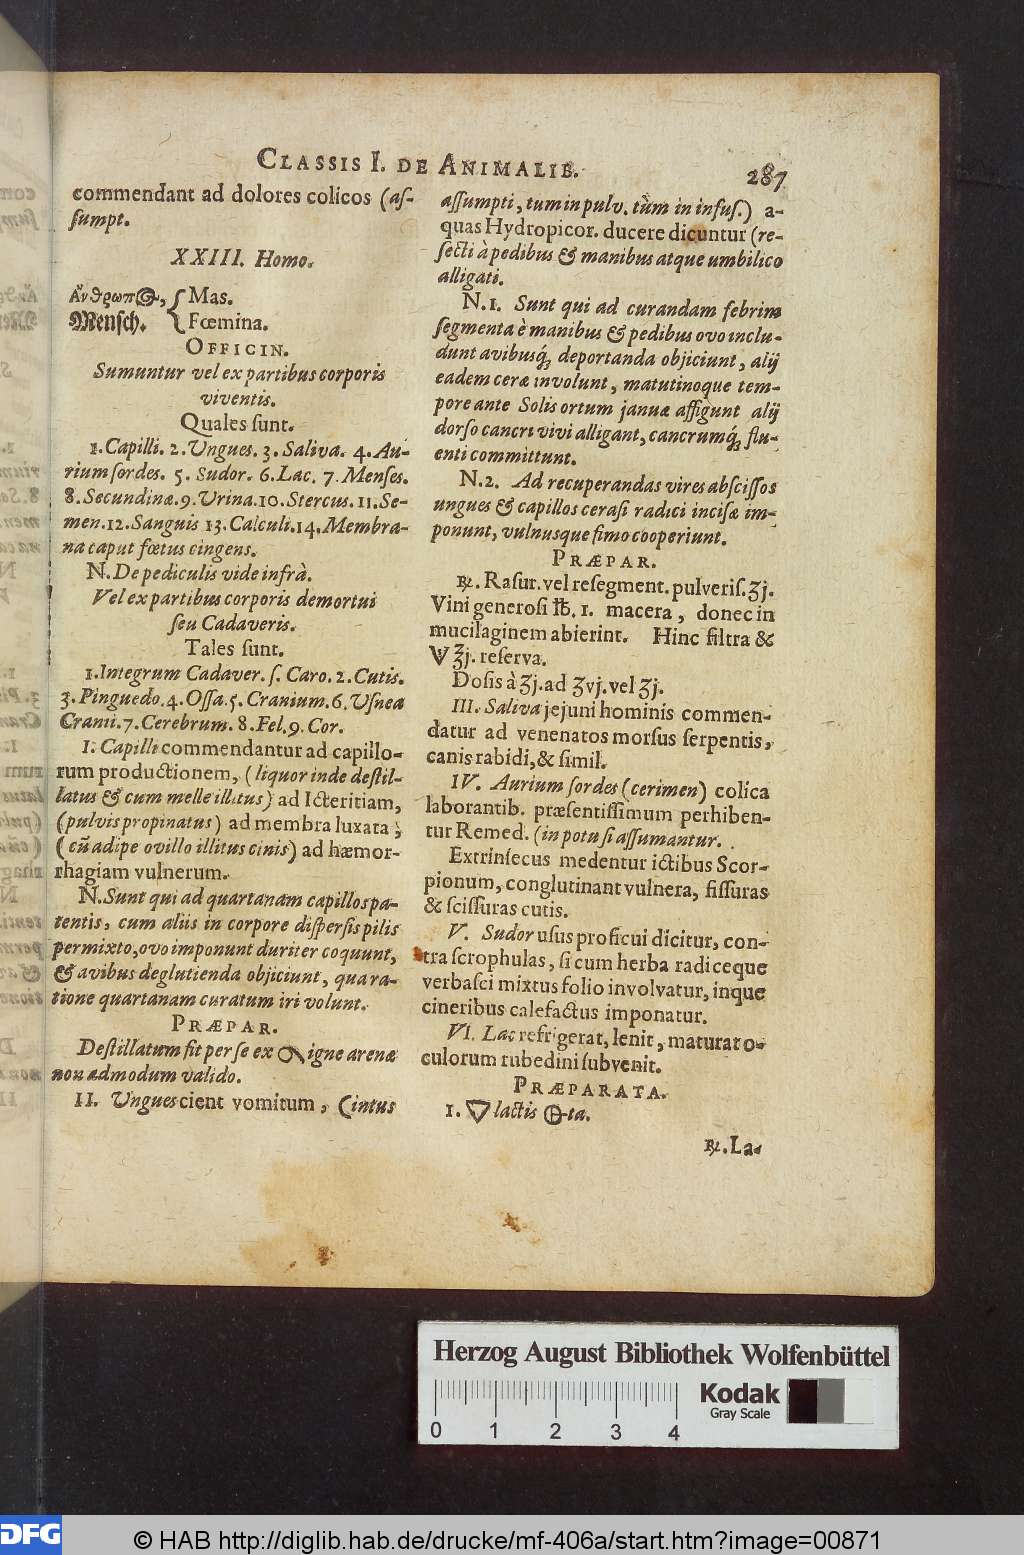 CLASSIS I. DE ANIMALIB. 287
commendant ad dolores colicos (aſ-
ſumpt.
XXIII. Homo.
Ἄνθρωπος, { Mas.
Menſch. Fœmina.
OFFICIN.
Sumuntur vel ex partibus corporis
viventis.
Quales ſunt.
1. Capilli. 2. Ungues. 3. Saliva. 4. Au-
rium ſordes. 5. Sudor. 6. Lac. 7. Menſes.
8. Secundinæ. 9. Urina. 10. Stercus. 11. Se-
men. 12. Sanguis 13. Calculi. 14. Membra-
na caput fœtus cingens.
N. De pediculis vide infrà.
Vel ex partibus corporis demortui
ſeu Cadaveris.
Tales ſunt.
1. Integrum Cadaver. ſ. Caro. 2. Cutis.
3. Pinguedo. 4. Oſſa. 5. Cranium. 6. Uſnea
Cranii. 7. Cerebrum. 8. Fel. 9. Cor.
I. Capilli commendantur ad capillo-
rum productionem, (liquor inde deſtil-
latus & cum melle illitus) ad Icteritiam,
(pulvis propinatus) ad membra luxata,
(cũ adipe ovillo illitus cinis) ad hæmor-
rhagiam vulnerum.
N. Sunt qui ad quartanam capillos pa-
tentis, cum aliis in corpore diſperſis pilis
permixto, ovo imponunt duriter coquunt,
& avibus deglutienda objiciunt, qua ra-
tione quartanam curatum iri volunt.
PRÆPAR.
Deſtillatum fit per ſe ex igne arenæ
non admodum valido.
II. Ungues cient vomitum, (intus
aſſumpti, tum in pulv. tùm in infuſ.) a-
quas Hydropicor. ducere dicuntur (re-
ſecti à pedibus & manibus atque umbilico
alligati.
N. 1. Sunt qui ad curandam febrim
ſegmenta è manibus & pedibus ovo inclu-
dunt avibusq́; deportanda objiciunt, alij
eadem ceræ involunt, matutinoque tem-
pore ante Solis ortum januæ affigunt alij
dorſo cancri vivi alligant, cancrumq́; flu-
enti committunt.
N. 2. Ad recuperandas vires abſciſſos
ungues & capillos ceraſi radici inciſæ im-
ponunt, vulnusque fimo cooperiunt.
PRÆPAR.
℞. Raſur. vel reſegment. pulveriſ. ʒj.
Vini generoſi ℔. 1. macera, donec in
mucilaginem abierint. Hinc filtra &
V ℥j. reſerva.
Doſis à ʒj. ad ʒvj. vel ℥j.
III. Saliva jejuni hominis commen-
datur ad venenatos morſus ſerpentis,
canis rabidi, & ſimil.
IV. Aurium ſordes (cerimen) colica
laborantib. præſentiſſimum perhiben-
tur Remed. (in potu ſi aſſumantur.
Extrinſecus medentur ictibus Scor-
pionum, conglutinant vulnera, fiſſuras
& ſciſſuras cutis.
V. Sudor uſus proficui dicitur, con-
tra ſcrophulas, ſi cum herba radiceque
verbaſci mixtus folio involvatur, inque
cineribus calefactus imponatur.
VI. Lac refrigerat, lenit, maturat o-
culorum rubedini ſubvenit.
PRÆPARATA.
1. 🜄 lactis -ta.
℞. La-
Herzog August Bibliothek Wolfenbüttel
0 1 2 3 4
Kodak
Gray Scale
DFG
© HAB http://diglib.hab.de/drucke/mf-406a/start.htm?image=00871